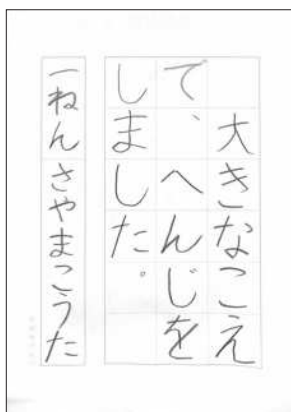 大きなこえ
で、へんじを
しました。
一ねん さやまこうた